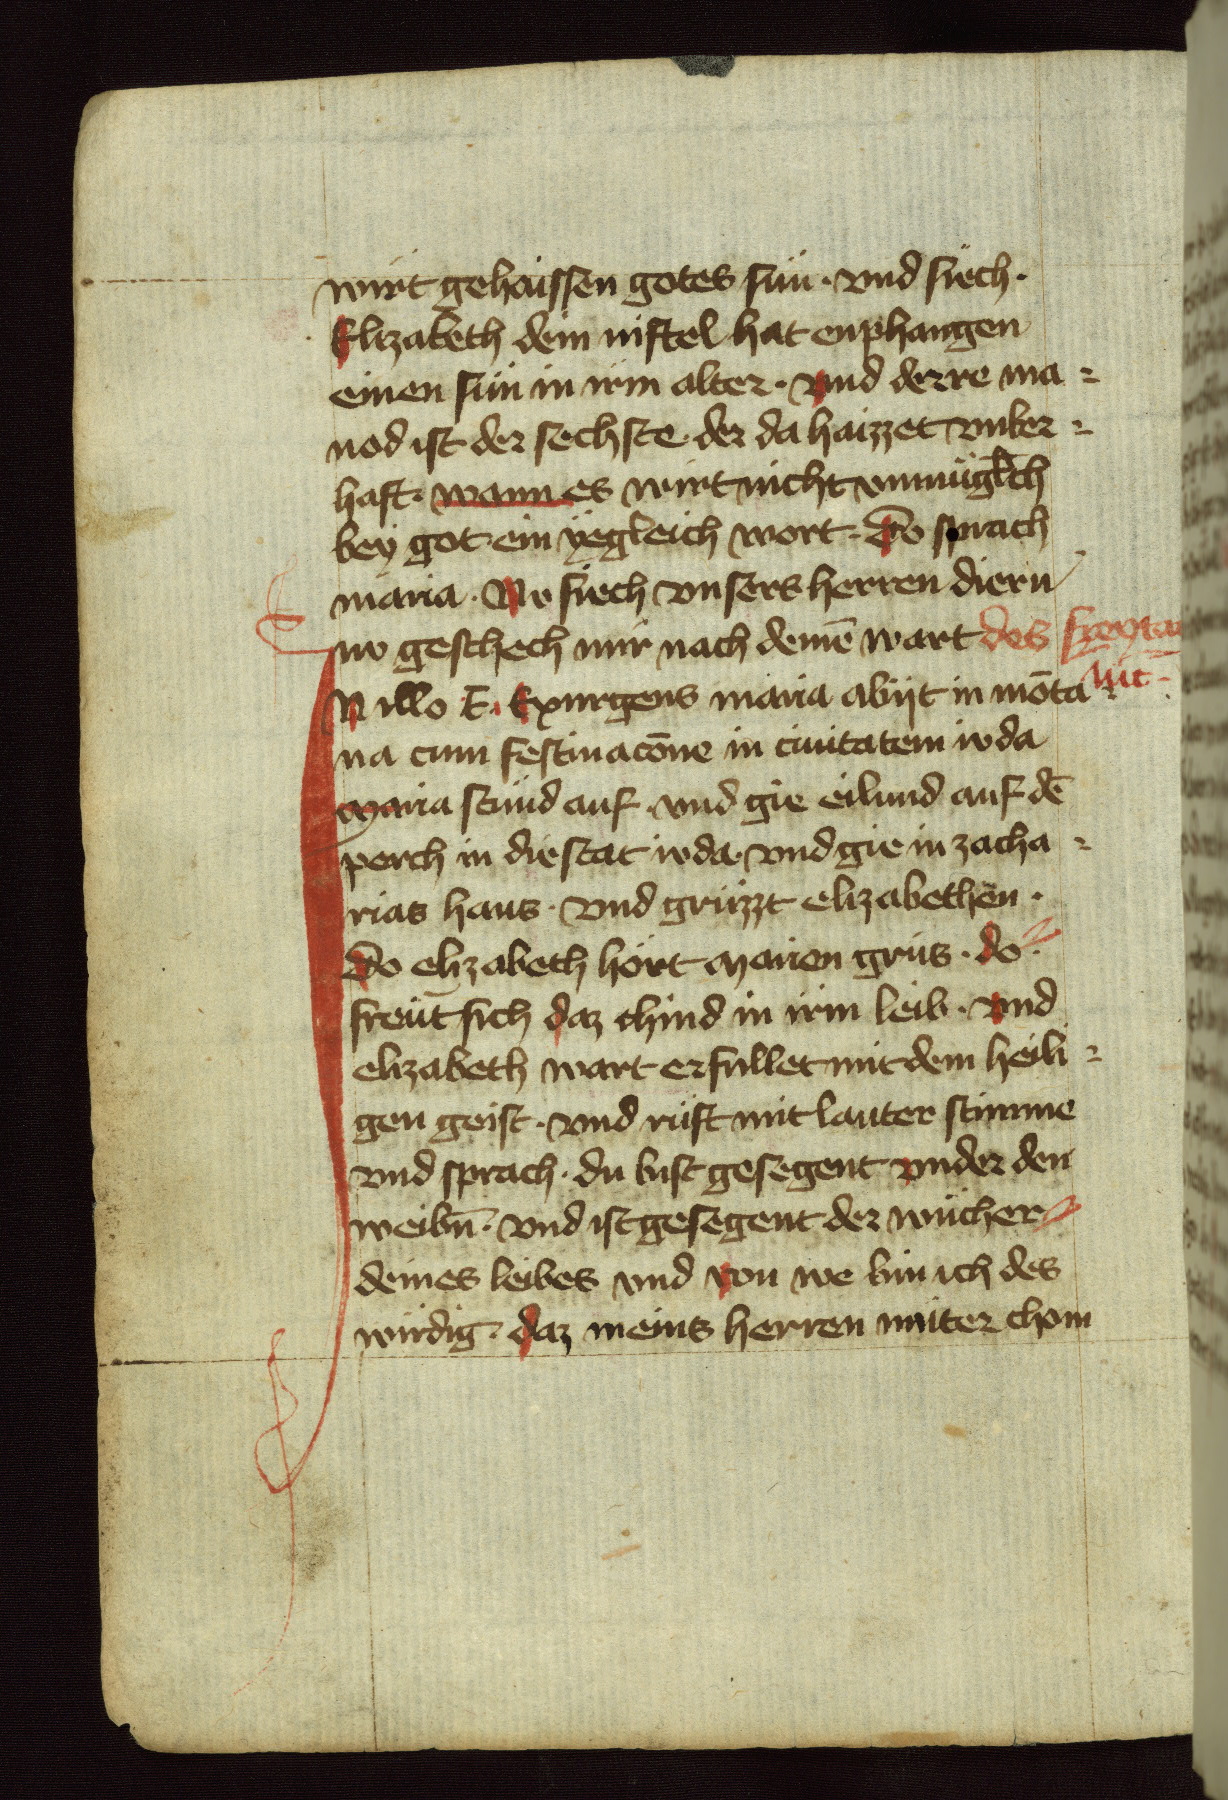 wirt gehaissen gotes sün · vnd siech ·
Elizabeth dein niftel hat enphangen
einen sün in irm alter · vnd derre ma=
nod ist der sechste · der da haizzet vnber=
haft · wann es wirt nicht vnmüglich
bey got ein yegleich wort · do sprach
maria · Nv siech vnsers herren diern
nv geschech mir nach deinē wart des freytag
IN illo t̄. Exurgens maria abijt in mōta= Mit
na cum festinacōne in ciuitatem ivda
Maria stund auf · vnd gie eilund auf dē
perch in die stat ivda · vnd gie in zacha=
rias haus · vnd grüzzt elizabethen ·
do elizabeth hört marien grüs · do
freüt sich daz chind in irm leib · vnd
elizabeth wart erfullet mit dem heili=
gen geist · vnd rüft mit lauter stimme
vnd sprach · du bist gesegent vnder den
weibn̄ · vnd ist gesegent der wücher
deines leibes vnd von we bin ich des
wirdig · daz meins herren müter chom